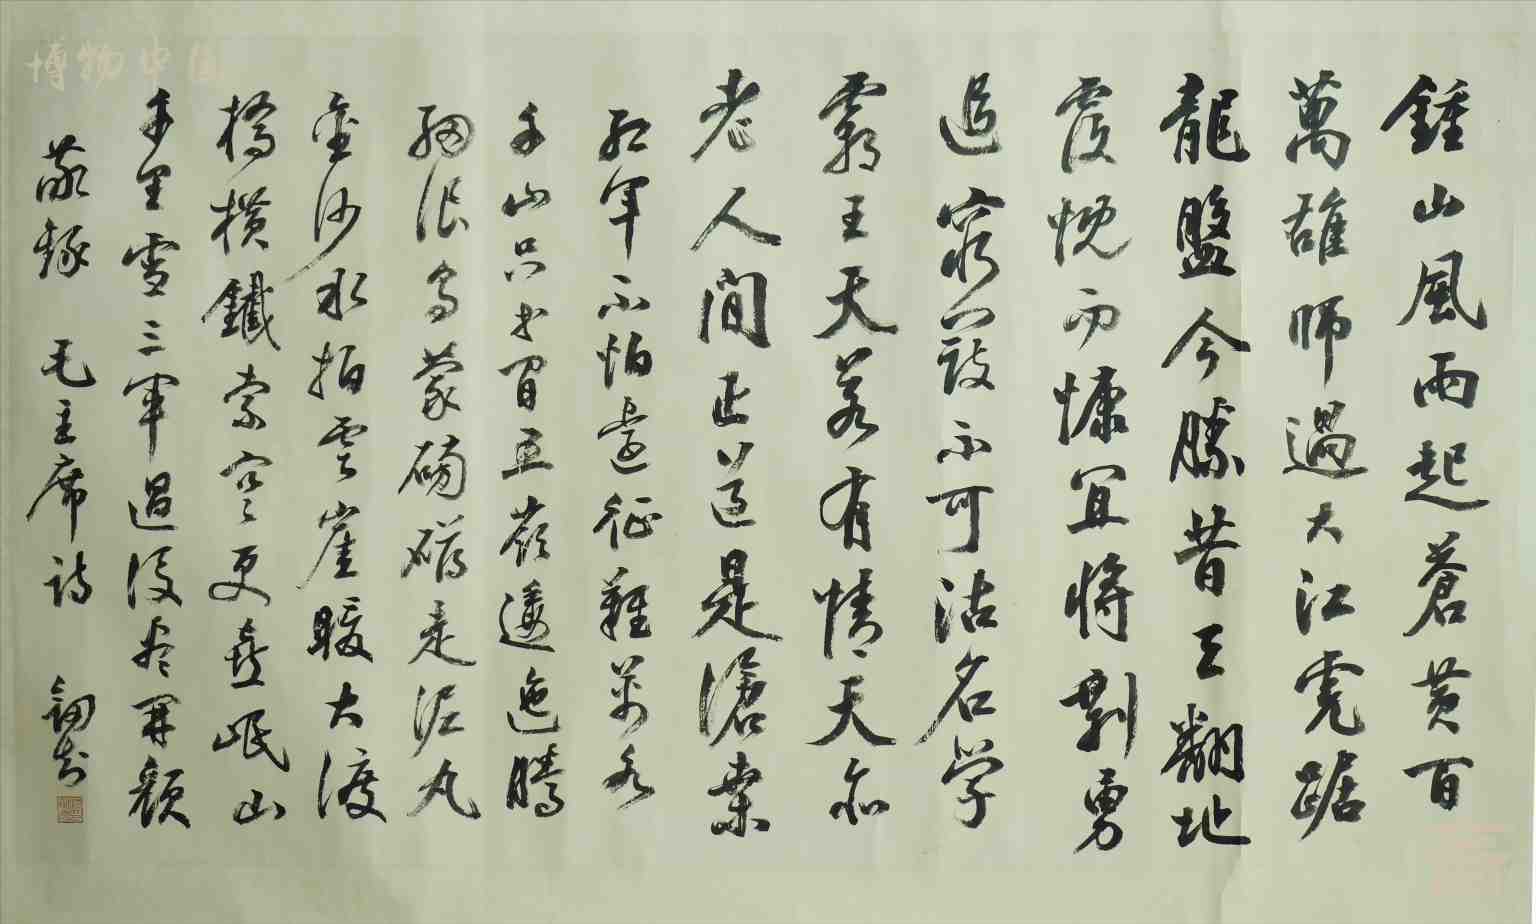 鍾山風雨起蒼黃百
萬雄師過大江虎踞
龍盤今勝昔天翻地
覆慨而慷宜將剩勇
追窮寇不可沽名学
霸王天若有情天亦
老人間正道是滄桑
红軍不怕遠征難萬水
千山只等閒五嶺逶迤騰
細浪烏蒙磅礴走泥丸
金沙水拍雲崖暖大渡
橋橫鐵索寒更喜岷山
千里雪三軍過後盡開顏
敬録 毛主席詩
博物中国